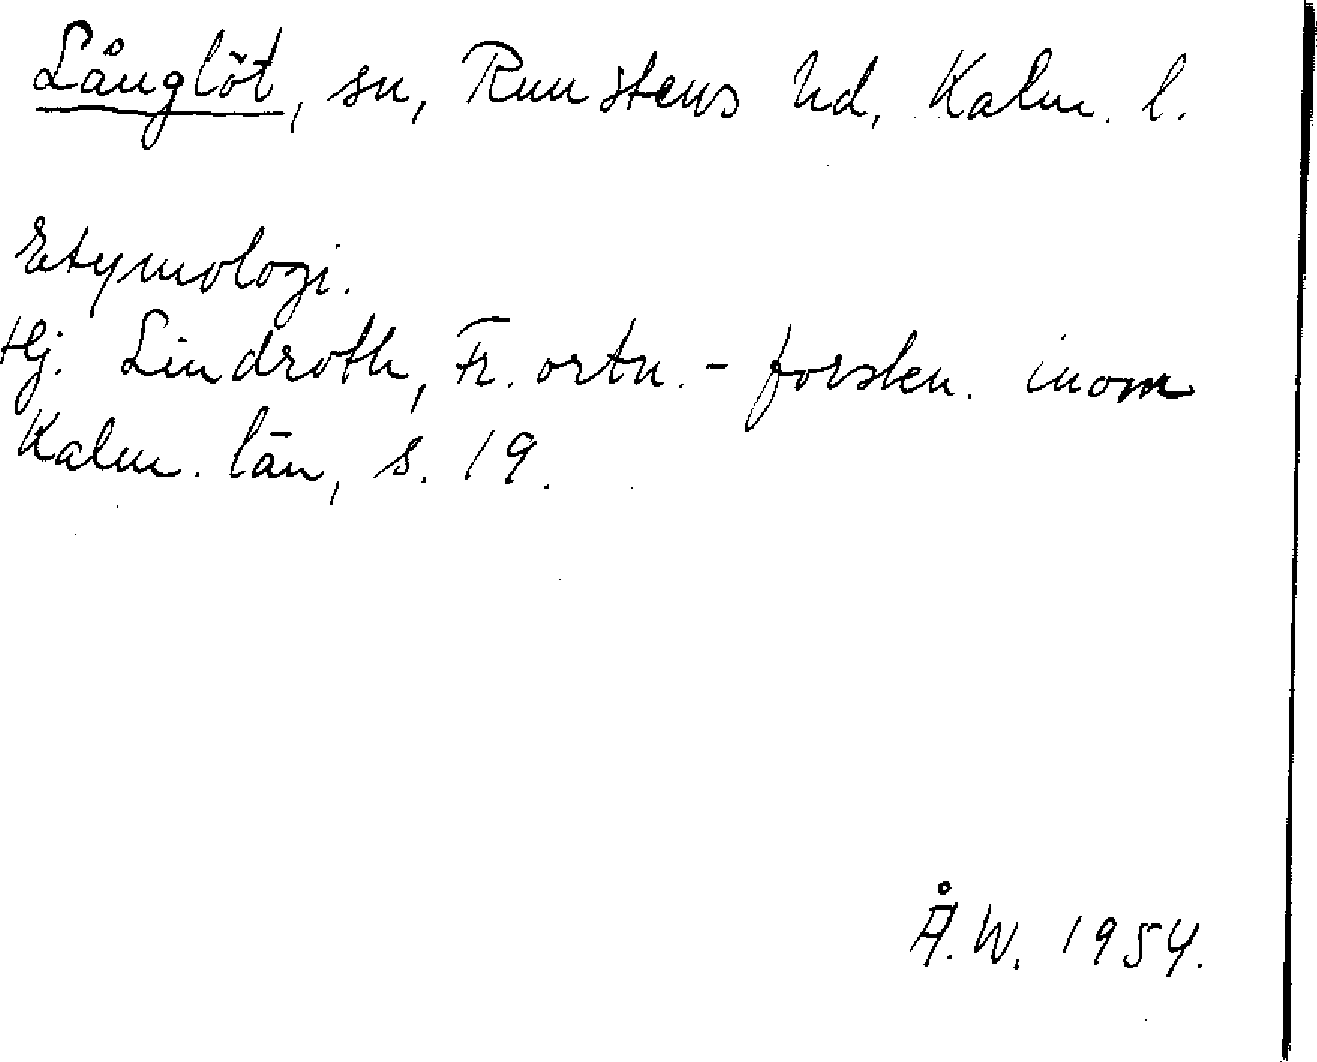 Långlöt, sn, Runstens hd, Kalm. l.
Etymologi.
Hj. Lindroth, Fr. ortn.- forskn. inom
Kalm. län, s. 19.
Å.W. 1954.